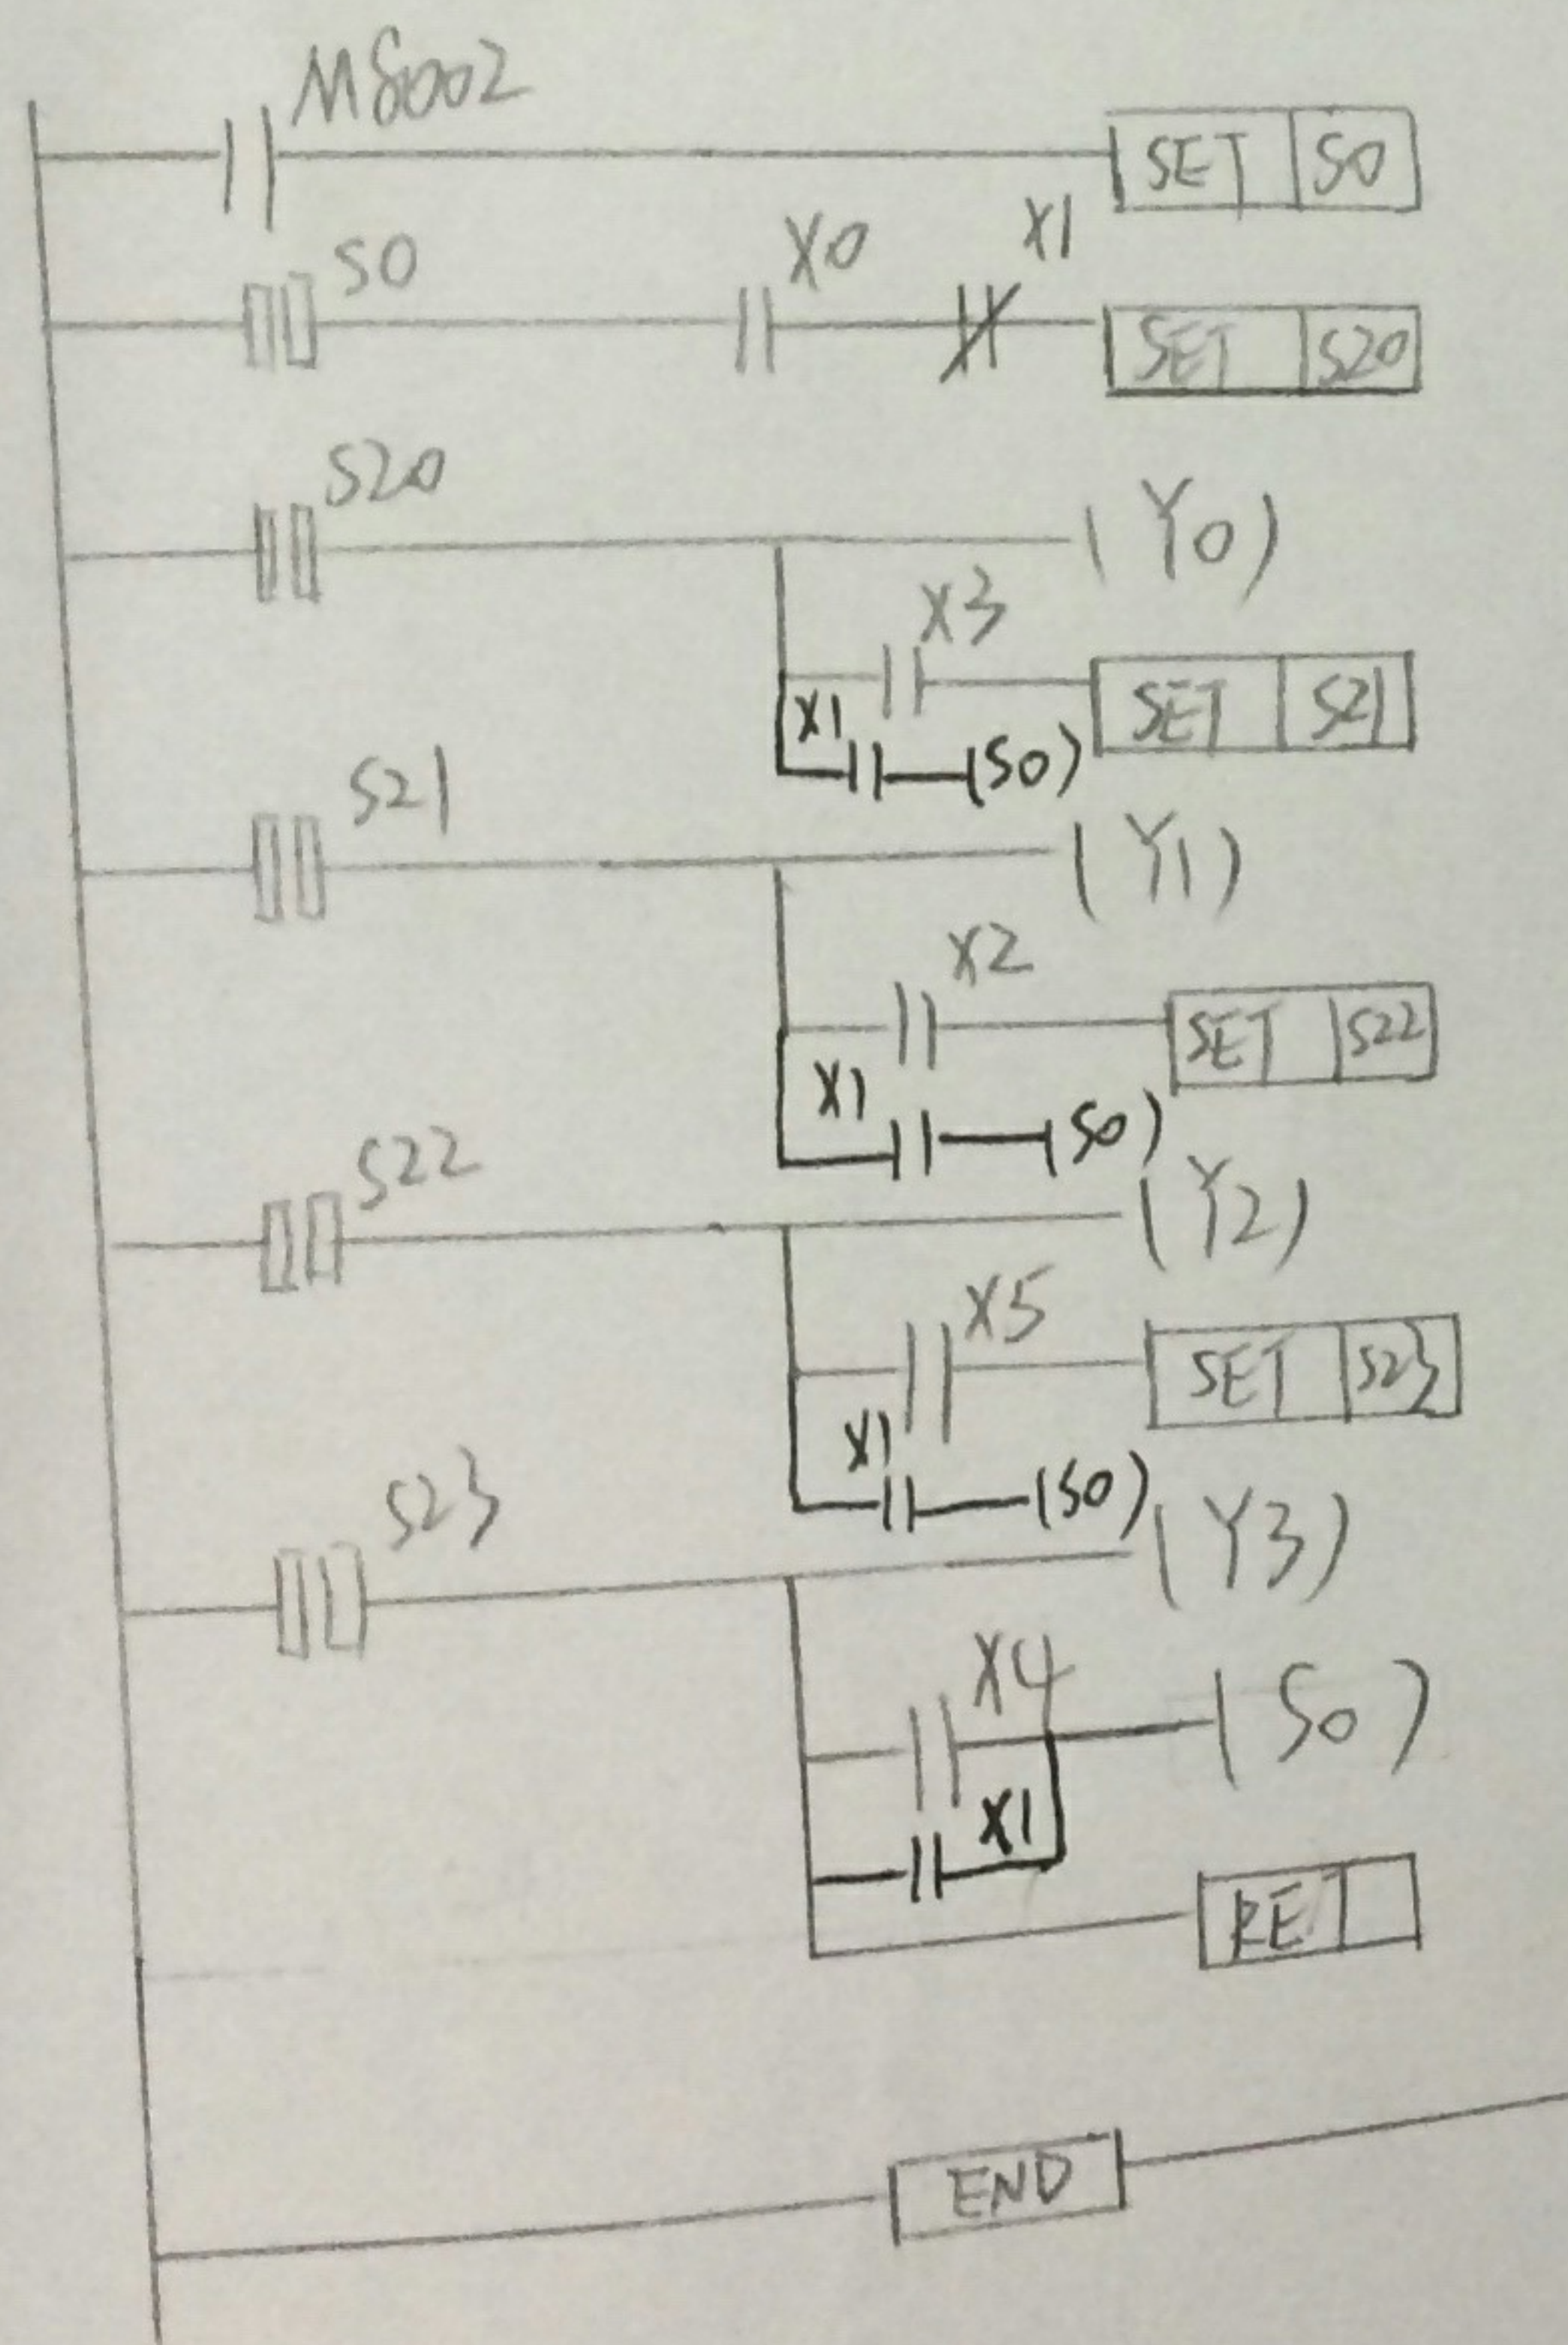 M8002
SET S0
S0 X0 X1
SET S20
S20
(Y0)
X3
SET S21
X1
(S0)
S21
(Y1)
X2
SET S22
X1
(S0)
S22
(Y2)
X5
SET S23
X1
(S0)
S23
(Y3)
X4
(S0)
X1
RET
END